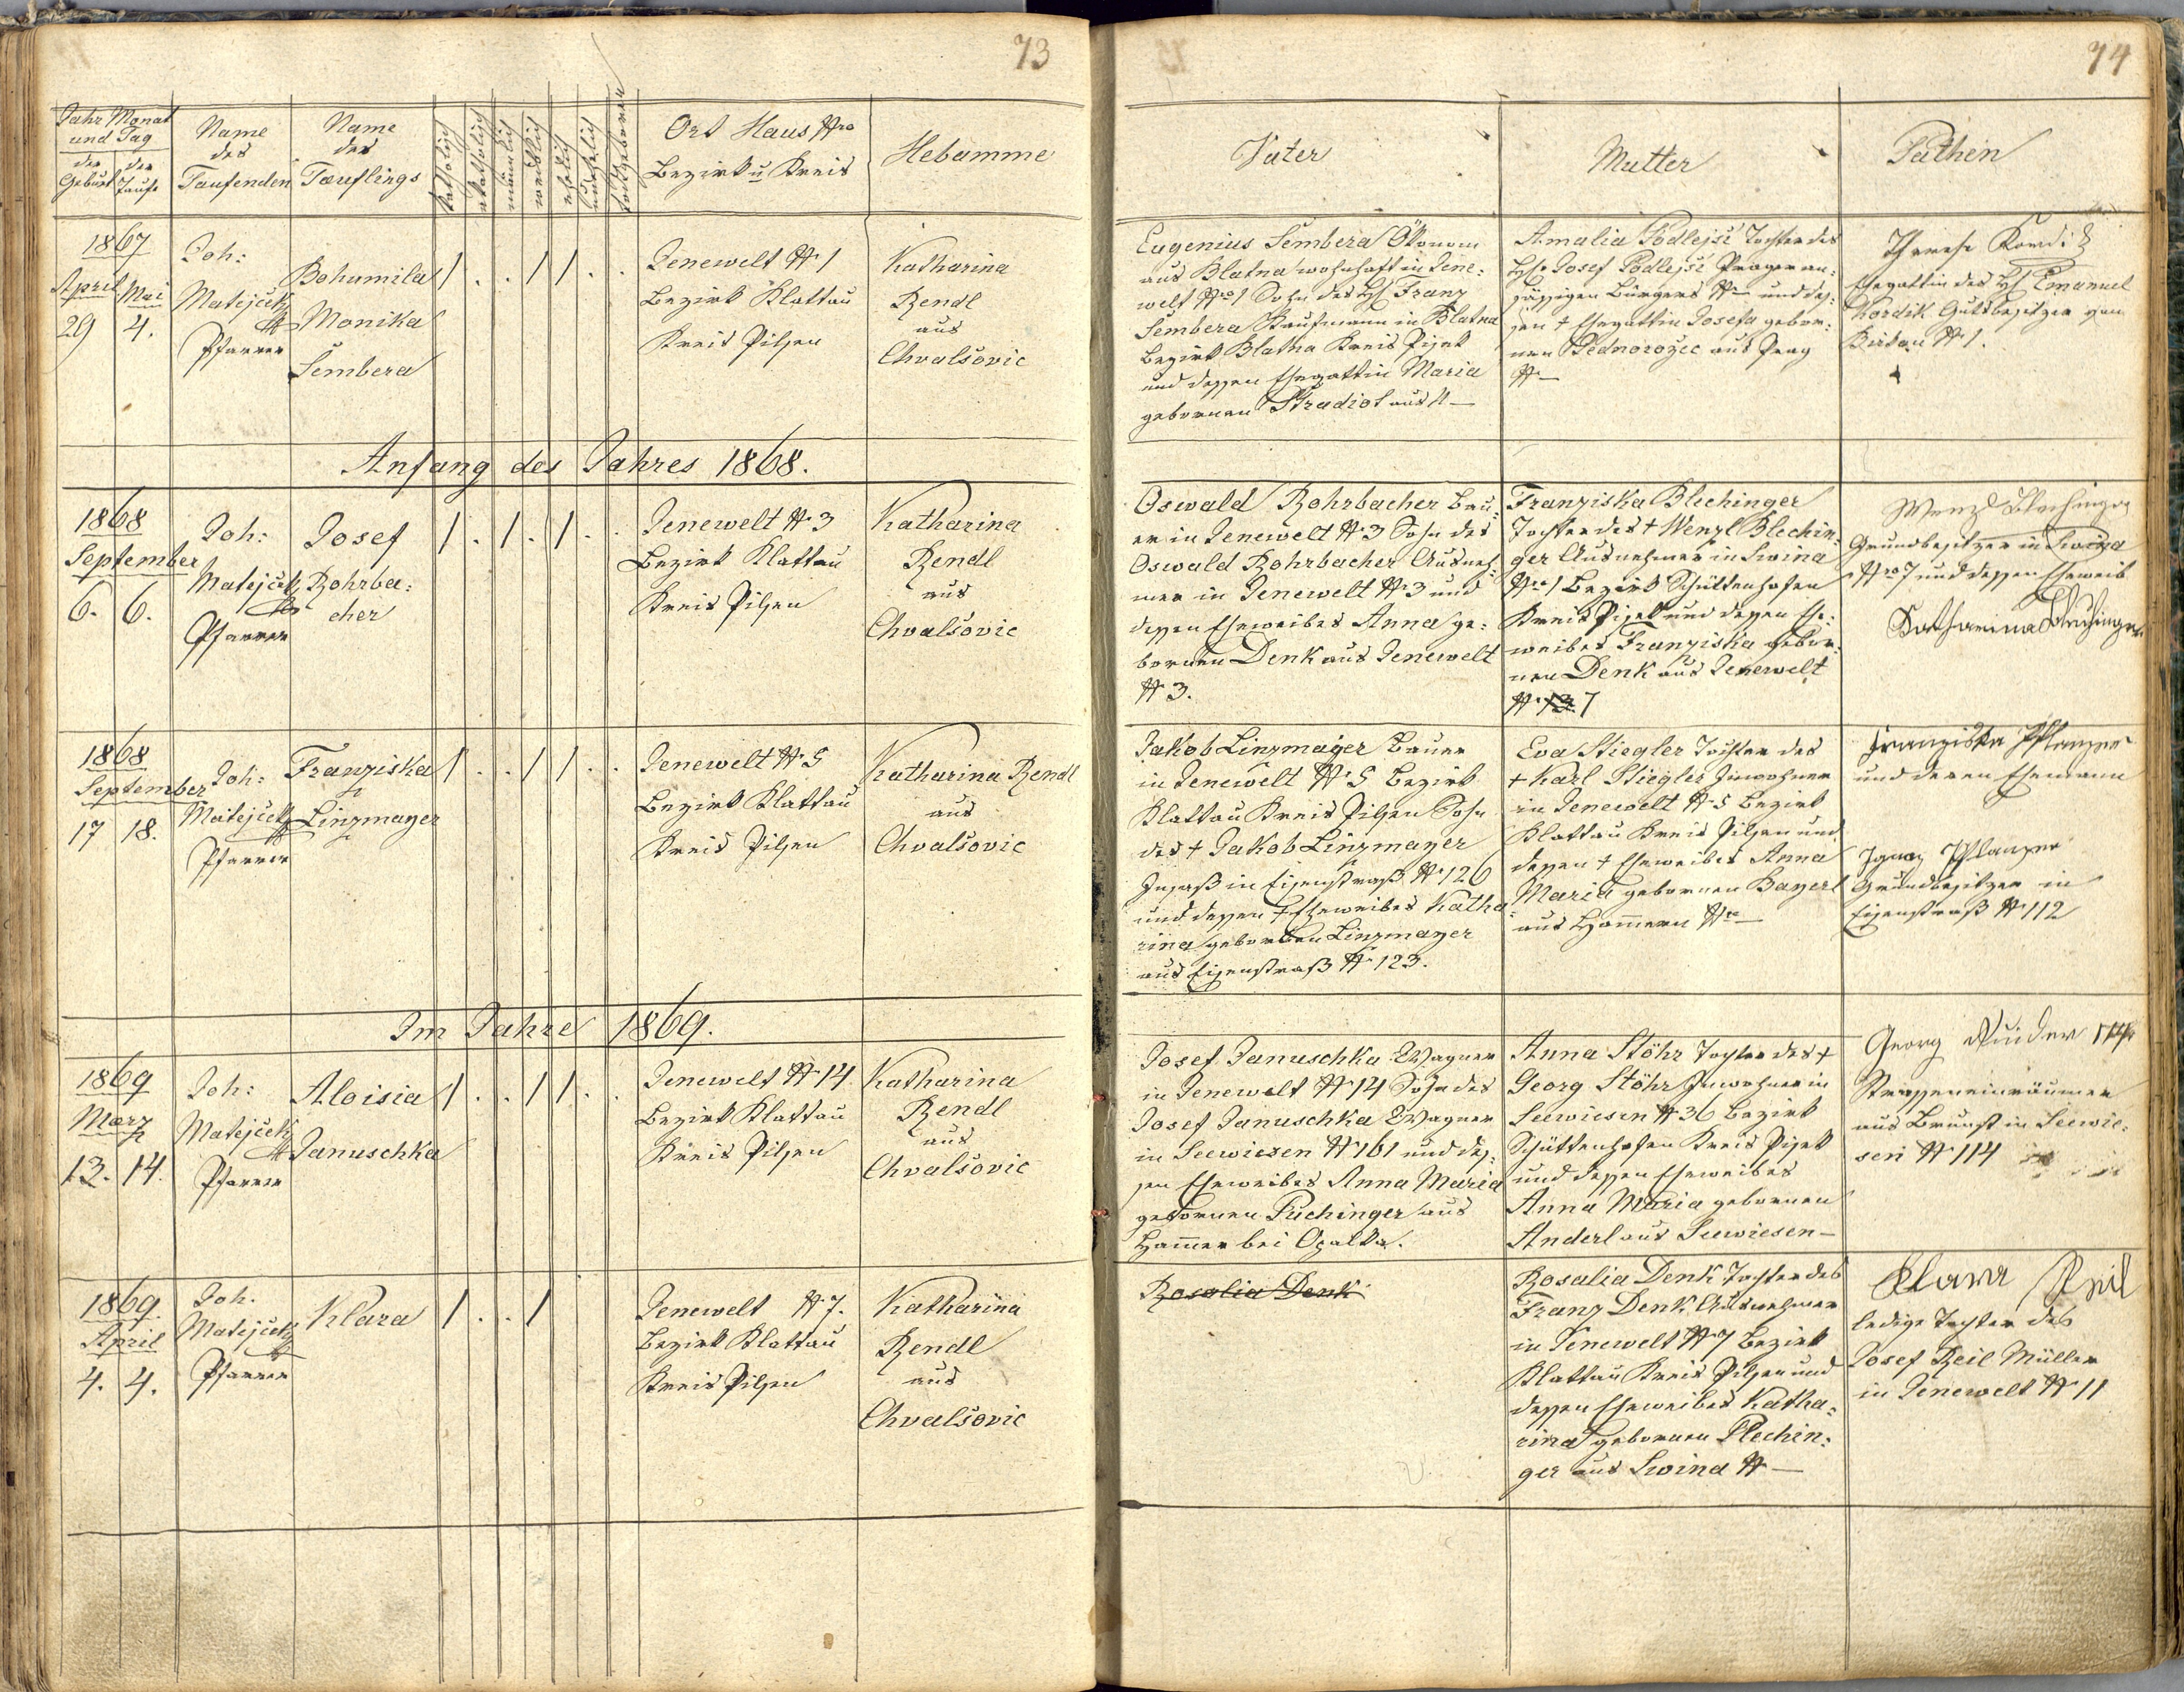 73
Jahr Monat
und Tag
der Geburt
der Taufe
Name
des
Taufenden
Name
des
Täuflings
katholisch
akatholisch
männlich
weiblich
ehelich
unehelich
Ort Haus Nro
Bezirk u Kreis
Hebamme
1867
April Mai
29 4.
Joh:
Matejček
Pfarrer
Bohumila
Monika
Šembera
1 . . 1 1 . .
Jenewelt N 1
Bezirk Klattau
Kreis Pilsen
Katharina
Rendl
aus
Chvalšovic
Anfang des Jahres 1868.
1868
September
6. 6.
Joh:
Matejček
Pfarrer
Josef
Rohrba:
cher
1 . 1 . 1 . .
Jenewelt N 3
Bezirk Klattau
Kreis Pilsen
Katharina
Rendl
aus
Chvalšovic
1868
September
17 18.
Joh:
Matejček
Pfarrer
Franziska
Linzmayer
1 . . 1 1 . .
Jenewelt N 5
Bezirk Klattau
Kreis Pilsen
Katharina Rendl
aus
Chvalšovic
Im Jahre 1869.
1869
März
13. 14.
Joh:
Matejček
Pfarrer
Aloisia
Januschka
1 . . 1 1 . .
Jenewelt N 14
Bezirk Klattau
Kreis Pilsen
Katharina
Rendl
aus
Chvalšovic
1869.
April
4. 4.
Joh.
Matejček
Pfarrer
Klara
1 . . 1
Jenewelt N 7.
Bezirk Klattau
Kreis Pilsen
Katharina
Rendl
aus
Chvalšovic
74
Vater
Mutter
Pathen
Eugenius Šembera Ökonom
aus Blatna wohnhaft in Jene:
welt Nro 1 Sohn des H. Franz
Šembera Kaufmann in Blatna
Bezirk Blatna Kreis Pisek
und dessen Ehegattin Maria
gebornen Stradiot aus N —
Amalia Podlejší Tochter des
H. Josef Podlejší Prager an:
sässigen Bürgers N — und des:
sen † Ehegattin Josefa gebor:
nen Bednorožec aus Prag
N —
Therese Kordik
Ehegattin des H. Emanuel
Kordik Gutsbesitzer von
Birkau N 1.
Oswald Rohrbacher Bau:
er in Jenewelt N 3 Sohn des
Oswald Rohrbacher Ausneh:
mer in Jenewelt N 3 und
dessen Eheweibes Anna ge:
bornen Denk aus Jenewelt
N 3.
Franziska Blechinger
Tochter des † Wenzl Blechin:
ger Ausnehmer in Swina
Nro 1 Bezirk Schüttenhofen
Kreis Pisek und dessen Ehe:
weibes Franziska gebor:
nen Denk aus Jenewelt
N 7
Wenzl Blechinger
Grundbesitzer in Swina
Nro 7 und dessen Eheweib
Katharina Blechinger
Jakob Linzmayer Bauer
in Jenewelt N 5 Bezirk
Klattau Kreis Pilsen Sohn
des † Jakob Linzmayer
Insaß in Eisenstraß N 126
und dessen † Eheweibes Katha
rina gebornen Linzmayer
aus Eisenstraß N 123.
Eva Stiegler Tochter des
† Karl Stiegler Inwohner
in Jenewelt N 5 Bezirk
Klattau Kreis Pilsen und
dessen † Eheweibes Anna
Maria gebornen Bayerl
aus Hammern Nro —
Franziska Pflanzer
und deren Ehemann
Ignaz Pflanzer
Grundbesitzer in
Eisenstraß N 112
Josef Januschka Wagner
in Jenewelt N 14 Sohn des
Josef Januschka Wagner
in Seewiesen N 161 und des:
sen Eheweibes Anna Maria
gebornen Puchinger aus
Hammer bei Opalka.
Anna Stöhr Tochter des †
Georg Stöhr Inwohner in
Seewiesen N 36 Bezirk
Schüttenhofen Kreis Pisek
und dessen Eheweibes
Anna Maria gebornen
Anderl aus Seewiesen —
Georg
Strasseneinräumer
aus Brunst in Seewie:
sen N 114
Rosalia Denk
Rosalia Denk Tochter des
Franz Denk Ausnehmer
in Jenewelt N 7 Bezirk
Klattau Kreis Pilsen und
dessen Eheweibes Katha:
rina gebornen Plechin:
ger aus Swina N —
Klara Reil
ledige Tochter des
Josef Reil Müller
in Jenewelt N 11